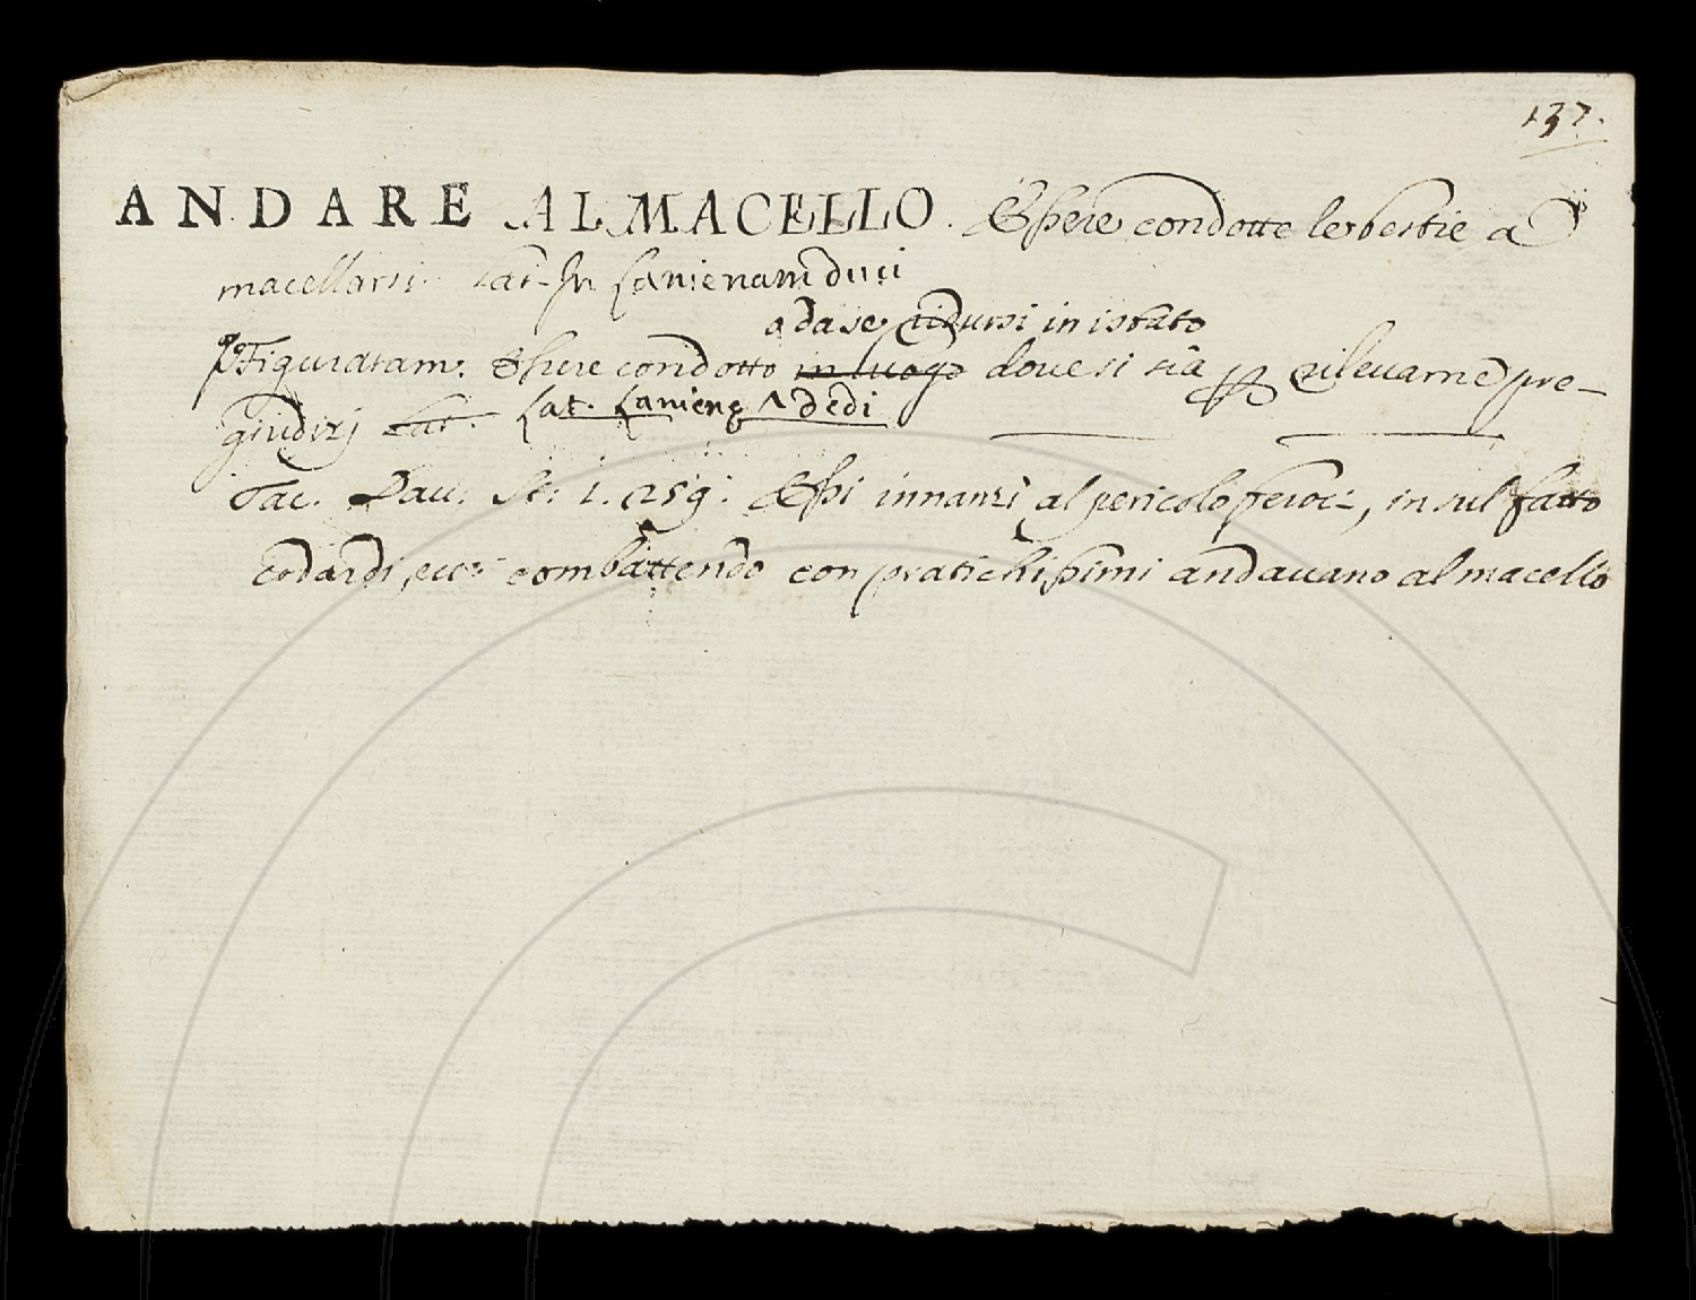 137.
ANDARE AL MACELLO. Essere condotte le bestie a
macellarsi. Lat. In Lanienam duci
o da se ridursi in istato
Figuratam. Essere condotto in luogo dove si sia p rilevarne pre-
giudizj Lat. Lat. Lanienę dedi
Tac. Dav. St: 1. 259. Essi innanzi al pericolo feroci, in sul fatto
codardi, ecc: combattendo con pratichissimi andavano al macello